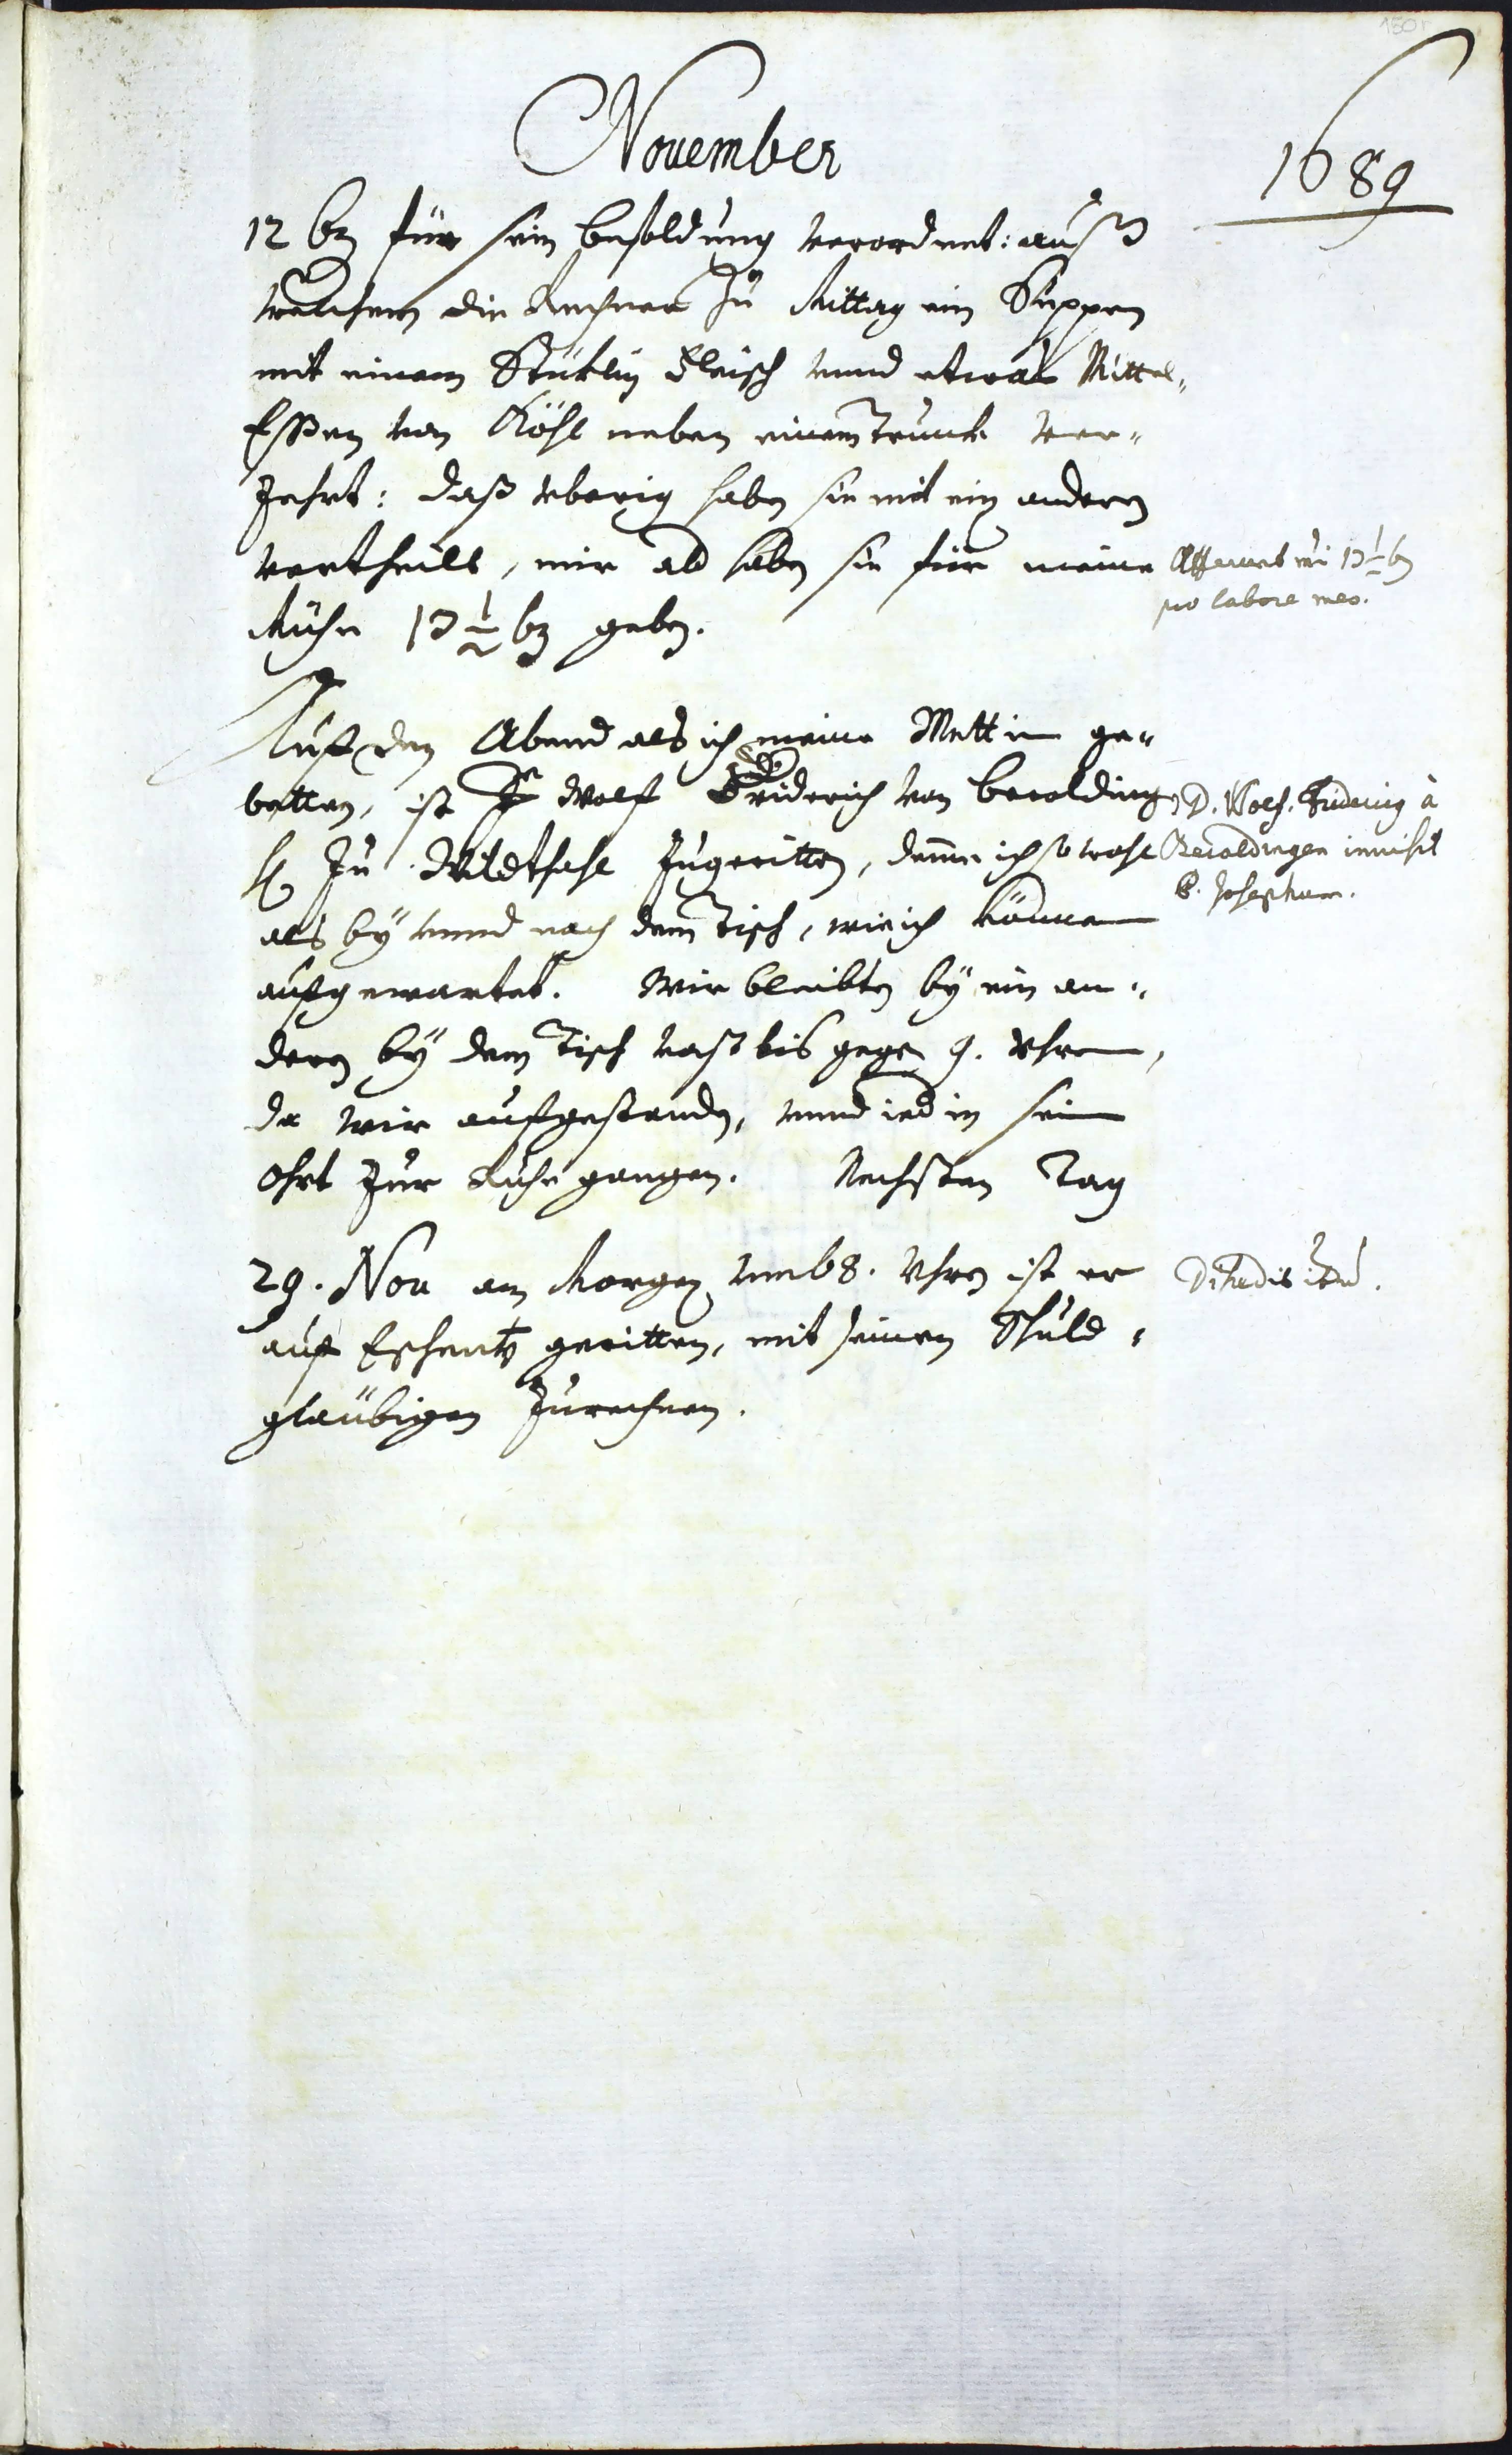 150r
November
1689
12 bz für sein besoldung verordnet: auß
welchem die Rechner zu Mittag ein Suppen
mit einem Stuklin Fleisch unnd etwas Mittel„
Essen von Köhl neben einem Trunck ver„
zehrt: daß uberig haben sie mit ein andern
vertheilt, mir aber haben sie für meine
Mühe 13 1/2 bz geben.
pro labore meo.
Auf den Abend als ich meine Mettin ge„
betten, ist Wolf Friderich von Beroldinge
zu zugeritten, deme ich so wohl
als by unnd nach dem Tisch, wie ich könne
aufgewartet. Wir bleibten by ein an„
dern by dem Tisch vast bis gegen 9. Uhren,
da wir aufgestanden, unnd ied in sein
Ohrt zur Ruhe gangen. Nechsten Tag
D. Wolf. Frideric à
Beroldingen invisit
S. Josephum.
29. Nov am Morgen umb 8. Uhren ist er
auf Eschentz geritten, mit seinen Schuld„
gläubigen zurechnen.